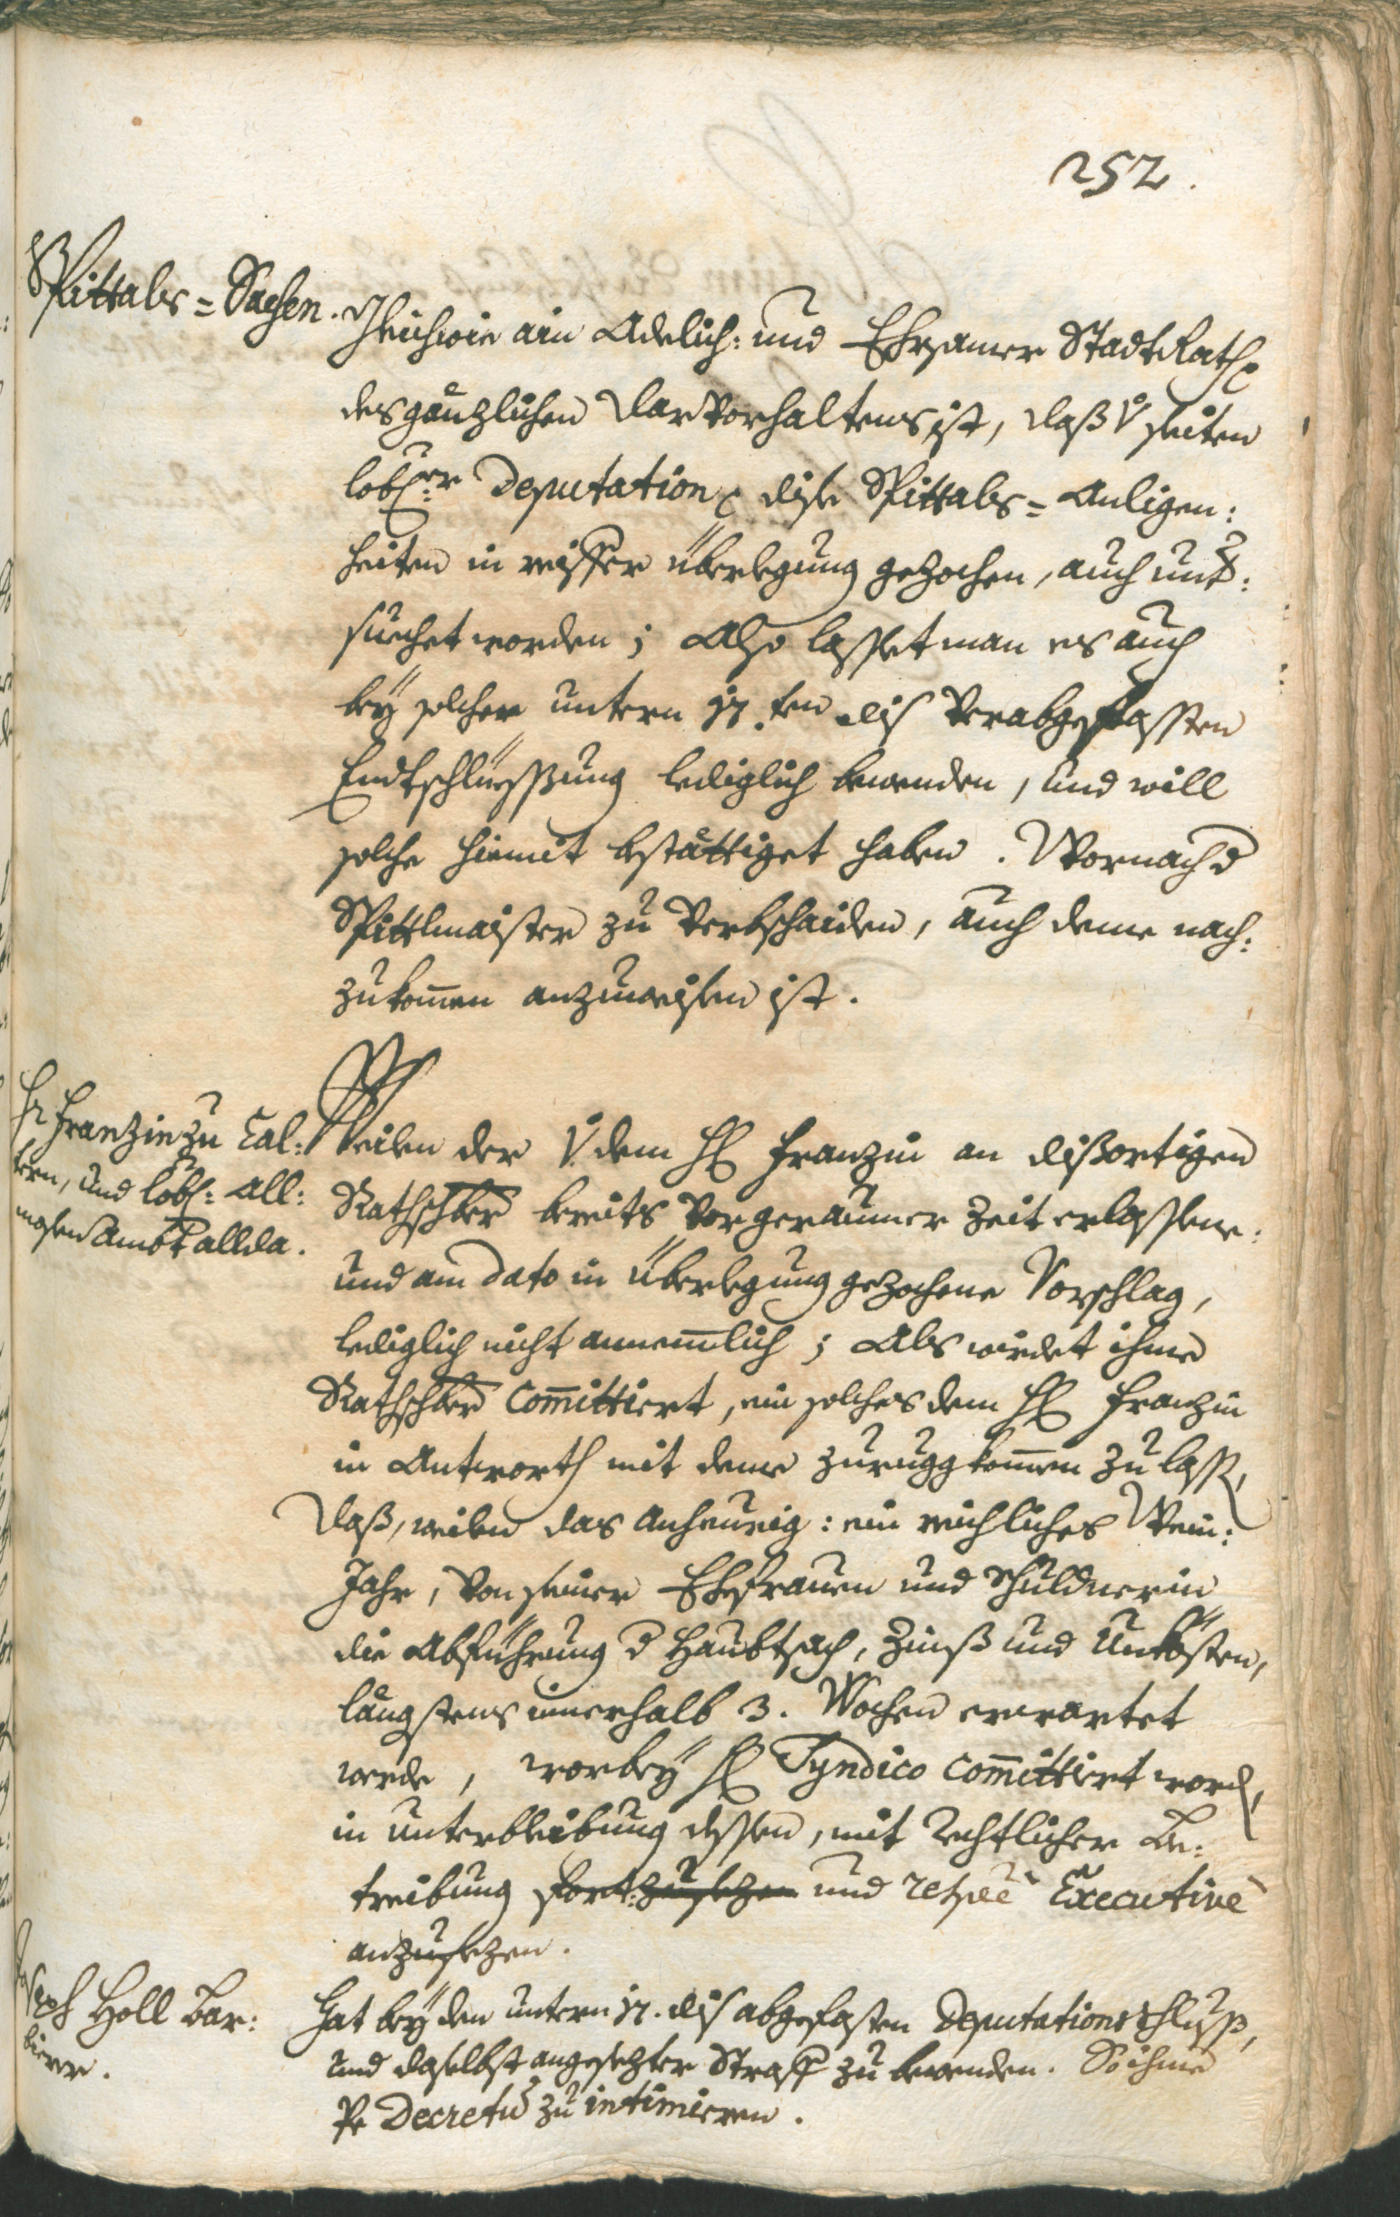 252.
Spittals=Sachen.
Gleichwie ain Adelich: und Ehrsamer StadtRath
des gänzlichen Darvorhaltens ist, daß v seiten
lobl:er Deputation dise Spittals=Anligen:
heiten in reiffer überlegung gezochen, auch unt:
suechet worden; Also lasset man es auch
bey solcher untern 17.ten dis verabgefassten
Endtschlüessung lediglich bewenden, und will
solche hiemit bestättiget haben. Wornach d
Spittlmaister zu verbschaiden, auch deme nach:
zukomen anzuweisen ist.
Hr Franzin zu Cal:
tern, und lobl: All:
mosen Ambt allda.
Weilen der v. dem H Franzin an dißortigen
Rathschber bereits vor geraumer Zeit erlassene:
und am dato in überlegung gezochene Vorschlag,
lediglich nicht annemlich; Als wirdet ihme
Rathschber Committiert, ein solches dem H Franzin
in Antworth mit deme zurugg komen zu lass,
daß, weilen das anheurig: ein reichliches Wein:
Jahr, von seiner Ehefrauen und Schuldnerin
die Abführung d Haubtsach, Zinß und Unkösten,
längstens innerhalb 3. Wochen erwartet
werde, worbey H Syndico Committiert word,
in unterbleibung dessen, mit rechtlicher Be:
treibung fort: zusezen und respee Executive
anzusezen.
Joseph Holl Bar:
bierer.
Hat bey den untern 17. dis abgefasten Deputationsschluß,
und daselbst angesezter Straff zu bewenden. So ihme
Pe Decretu zu intimieren.